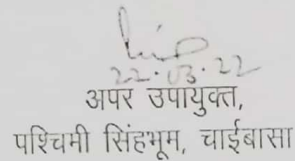 22.03.22
अपर उपायुक्त,
पश्चिमी सिंहभूम, चाईबासा